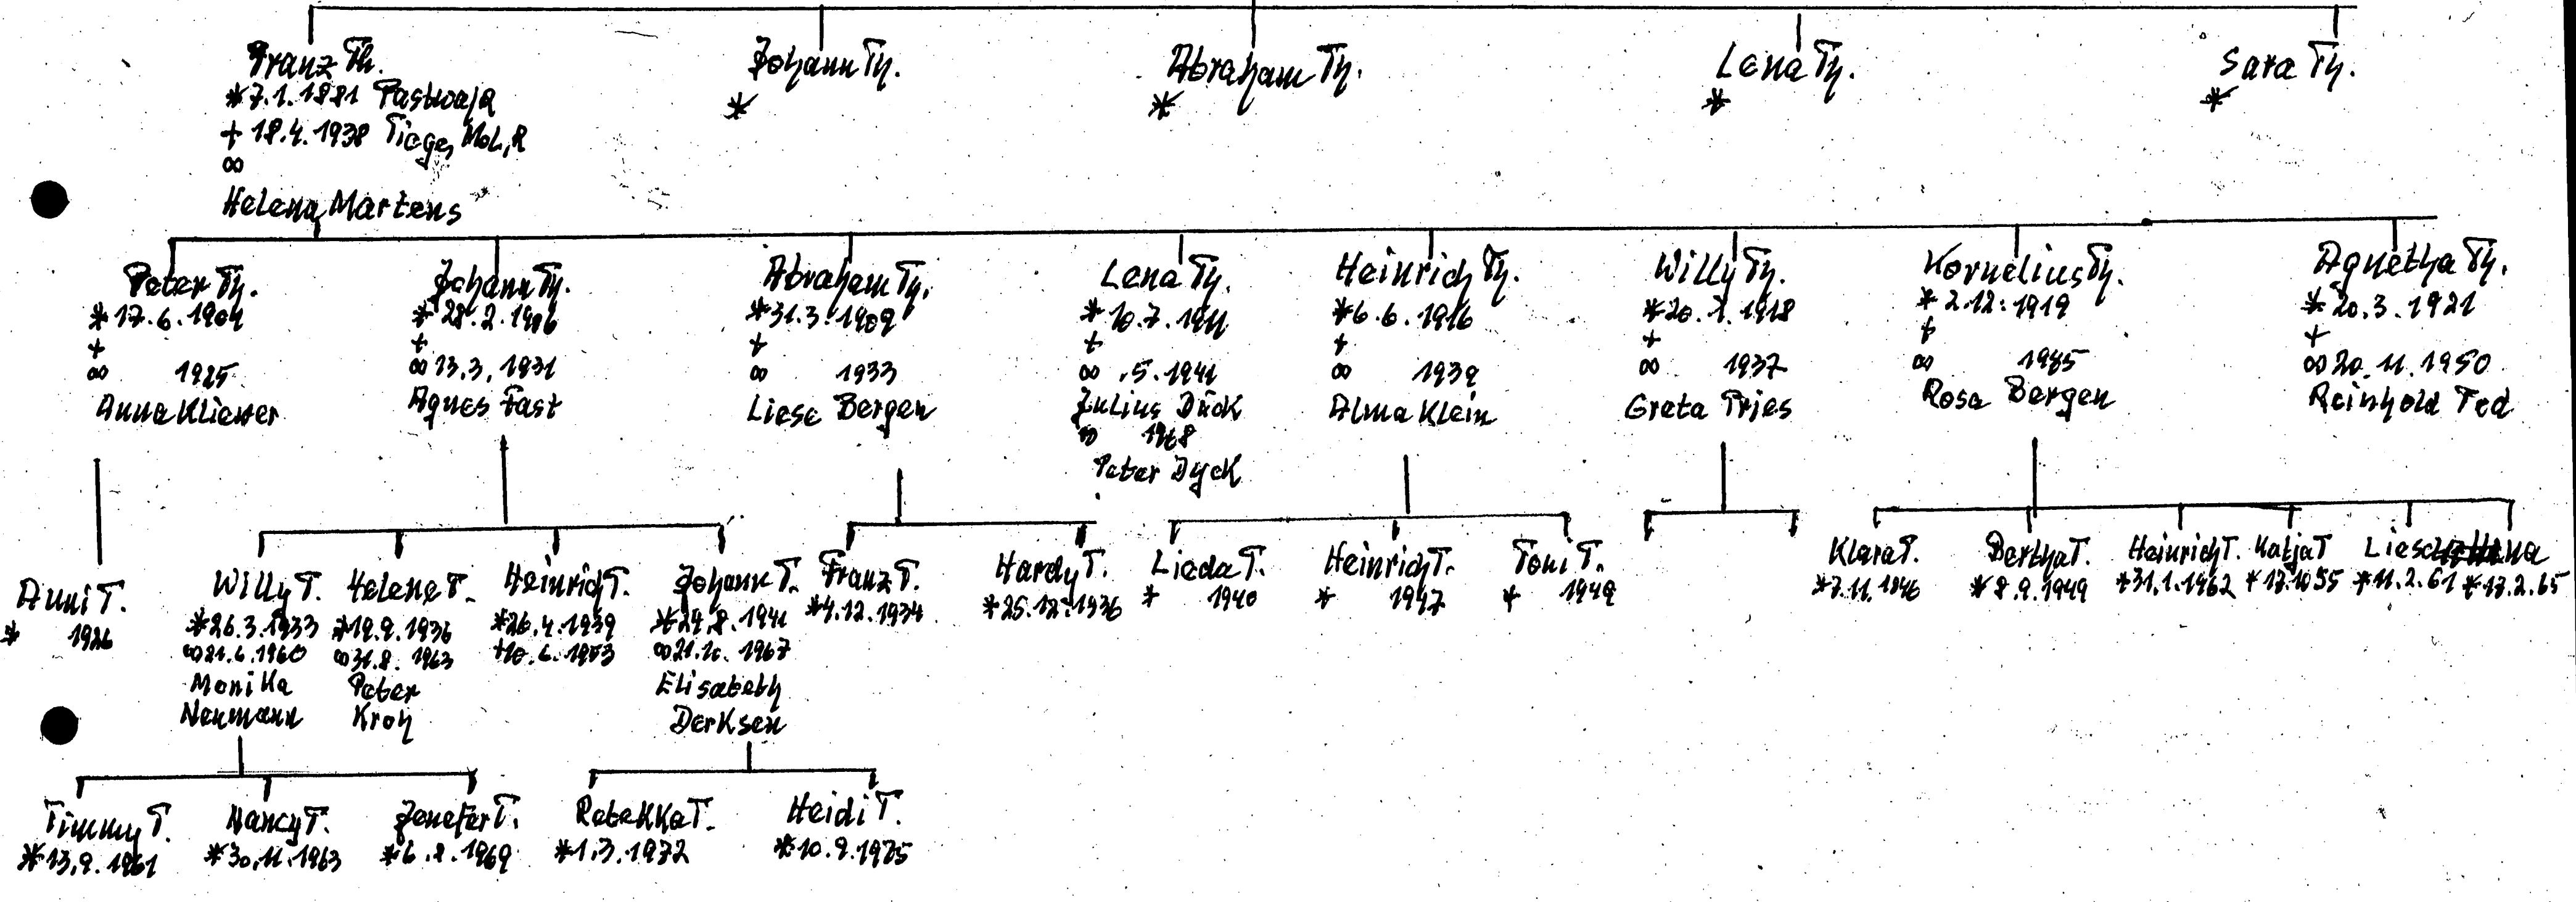 Franz Th.
*7.1.1881 Pastwaja
+ 18.4.1938 Tiege, Mol, R
∞
Helena Martens
Johann Th.
*
Abraham Th.
*
Lena Th.
*
Sara Th.
*
Peter Th.
*17.6.1904
+
∞ 1925
Anna Kliewer
Johann Th.
*28.2.1906
+
∞ 23.3.1931
Agnes Fast
Abraham Th.
*31.3.1909
+
∞ 1933
Liese Bergen
Lena Th.
*10.7.1911
+
∞ .5.1941
Julius Dück
∞ 1968
Peter Dyck
Heinrich Th.
*6.6.1916
+
∞ 1939
Alma Klein
Willy Th.
*20.7.1918
+
∞ 1937
Greta Fries
Kornelius Th.
*2.12.1919
+
∞ 1945
Rosa Bergen
Agnetha Th.
*20.3.1921
+
∞ 20.11.1950
Reinhold Ted
Anni T.
* 1926
Willy T.
*26.3.1933
∞21.6.1960
Monika
Neumann
Helene T.
*19.9.1936
∞31.8.1963
Peter
Kroh
Heinrich T.
*26.4.1939
+10.6.1953
Johann T.
*24.8.1941
∞21.10.1967
Elisabeth
Derksen
Franz T.
*4.12.1934
Hardy T.
*25.12.1936
Lieda T.
* 1940
Heinrich T.
* 1947
Toni T.
* 1949
Klara T.
*7.11.1946
Bertha T.
*8.9.1949
Heinrich T.
*31.1.1962
Katja T
*17.10 55
*11.2.61
*17.2.65
Timmy T.
*13.9.1961
Nancy T.
*30.11.1963
Jenefer T.
*6.8.1969
Rebekka T.
*1.3.1972
Heidi T.
*10.9.1975